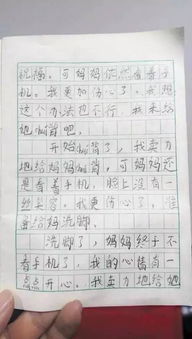 机摘。可妈妈依然看着手
机。我更加伤心了。我想
这个办法也不行，我来给
她捶背吧。
开始捶背了，我卖力
地给妈妈捶背，可妈妈还
是看着手机，脸上没有一
丝笑容。我更伤心了，准
备给妈洗脚。
洗脚了，妈妈终于不
看手机了，我的心情有一
点点开心。我卖力地给她